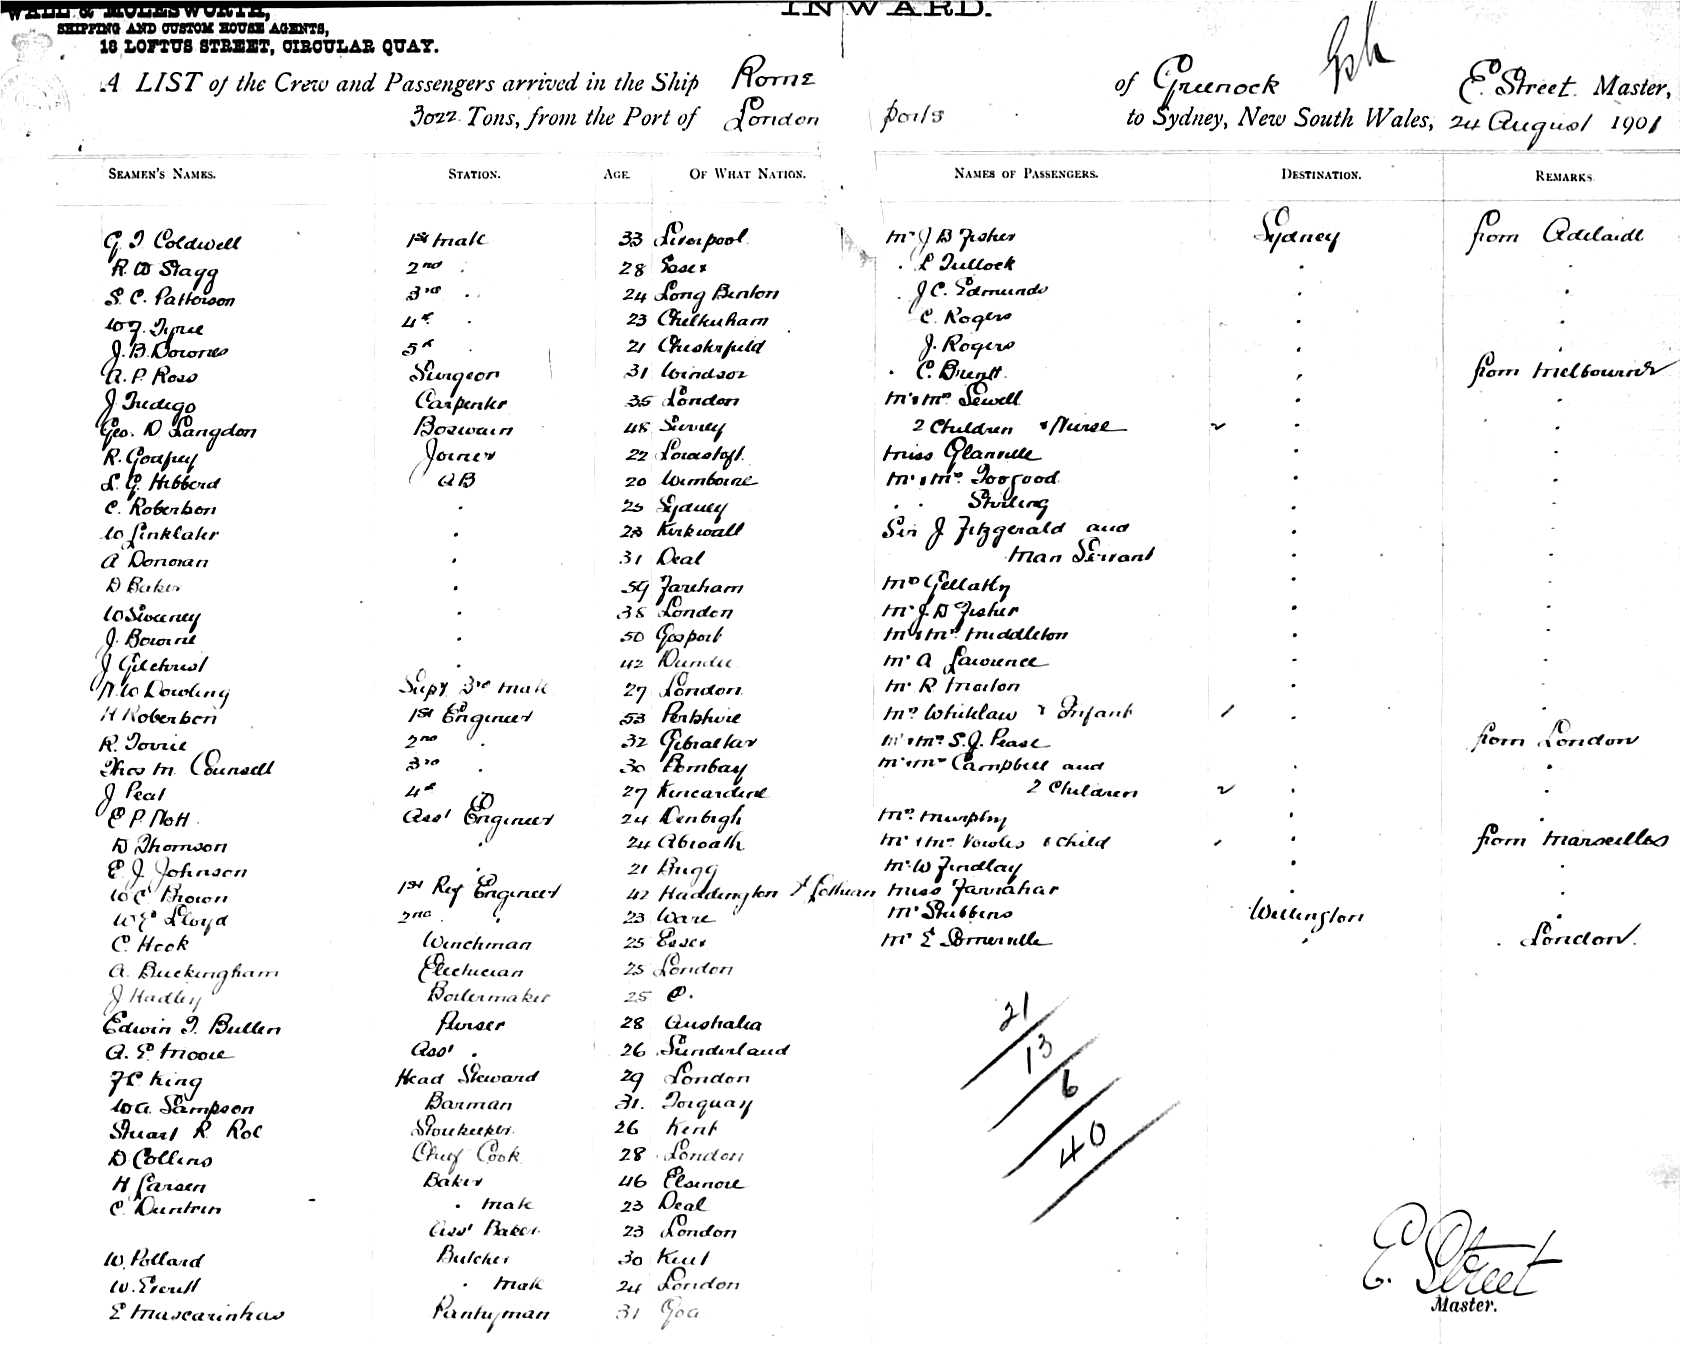 WALL & MOLESWORTH,
SHIPPING AND CUSTOM HOUSE AGENTS,
18 LOFTUS STREET, CIRCULAR QUAY.
INWARD.
A LIST of the Crew and Passengers arrived in the Ship Rome of Greenock E. Street Master,
3022 Tons, from the Port of London ports to Sydney, New South Wales, 24 August 1901
SEAMEN'S NAMES. STATION. AGE. OF WHAT NATION. NAMES OF PASSENGERS. DESTINATION. REMARKS
G T Coldwell 1st Mate 33 Liverpool Mr J B Fisher Sydney from Adelaide
R. W Stagg 2nd . 28 Essex . L Tullock . .
S. C. Patterson 3rd . 24 Long Benton . J C. Edmunds . .
W J. Tyrie 4th . 23 Cheltenham C. Rogers . .
J. B. Downes 5th . 21 Chesterfield J. Rogers . .
A. P. Ross Surgeon 31 Windsor . C. Brentt . from Melbourne
J Tredigo Carpenter 35 London Mr & Mrs Sewell . .
Geo. D Langdon Boswain 48 Surrey 2 Children & Nurse 2 . .
R. Godfrey Joiner 22 Lowestoft Miss Glanville . .
L. G. Hibberd AB 20 Wimborne Mr & Mrs Toogood . .
C. Roberson . 25 Sydney . . Stirling . .
W Sinklater . 23 Kirkwall Sir J Fitzgerald and . .
A Donovan . 31 Deal Man Servant . .
D Baker . 59 Fareham Mrs Gellatly . .
W Sweeney . 38 London Mr J. B Fisher . .
J. Bourne . 50 Gosport Mr & Mrs Middleton . .
J Gilchrist . 42 Dundee Mr A Lawrence . .
N. W Dowling Supy 3rd Mate 27 London Mr R Marton . .
H Roberson 1st Engineer 53 Perthshire Mrs Whitelaw & Infant 1 . .
R. Torrie 2nd . 32 Gibraltar Mr & Mrs S. J. Pease from London
Thos M. Counsell 3rd . 30 Bombay Mr & Mrs Campbell and . .
J Peat 4th . 27 Kincardine 2 Children 2 . .
E P. Nott Asst Engineer 24 Denbigh Mrs Murphy .
D Thomson . 24 Abroath Mr & Mrs Vowles & Child , . from Marseilles
E. J. Johnson . 21 Brigg Mr W Findlay . .
W C Brown 1st Ref Engineer 42 Haddington Miss Farrahar . .
W E Lloyd 2nd . 23 Ware Mr Stubbins Wellington .
C. Hook Winchman 25 Essex Mr E Somerville . . London.
A. Buckingham Electrician 25 London
J Hadley Boilermaker 25
Edwin T. Bullen Purser 28 Australia
A. E. Moore Asst . 26 Sunderland
F C King Head Steward 29 London
W A. Sampson Barman 31. Torquay
Stuart R Roe Storekeeper 26 Kent
D Collins Chief Cook 28 London
H Larsen Baker 46 Elsinore
C. Duntrin . Mate 23 Deal
Asst Baker 23 London
W. Pollard Butcher 30 Kent
W. Everett . Mate 24 London
E Mascarinhas Pantryman 31 Goa
21
13
6
40
E. Street
Master.